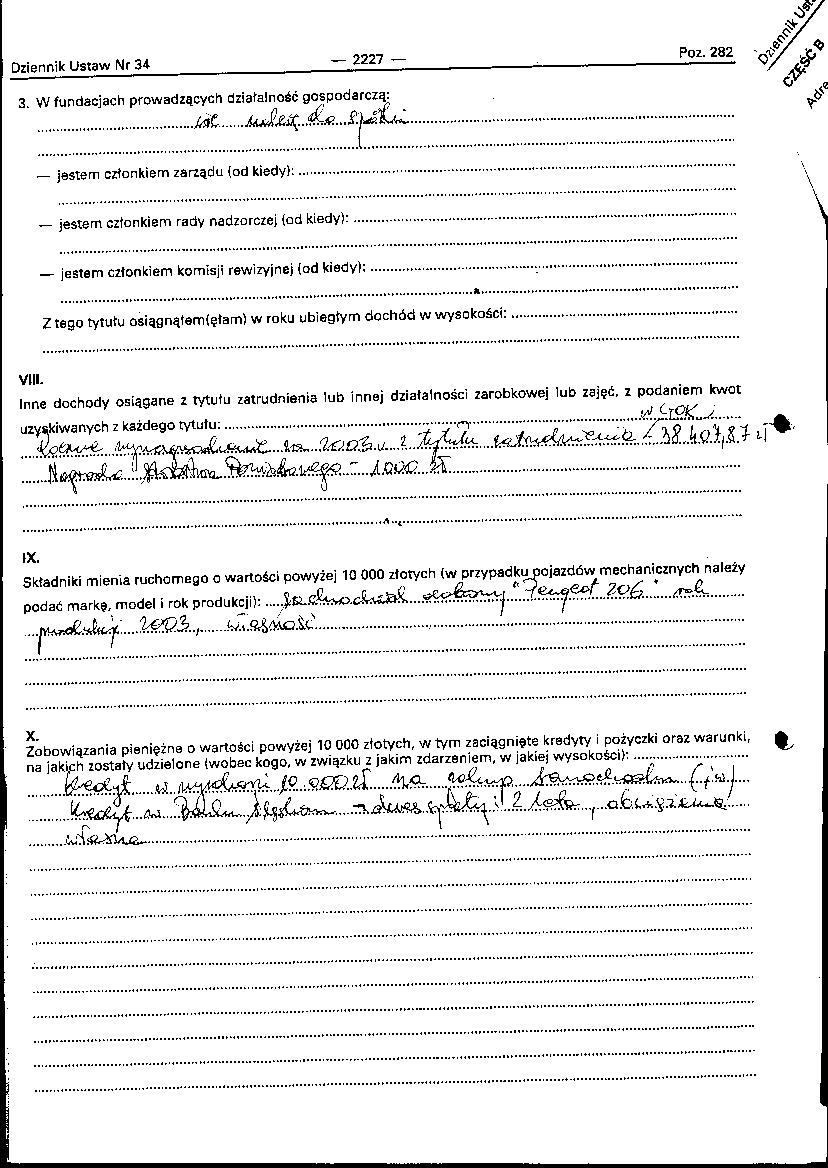 Dziennik Ustaw Nr 34 — 2227 — Poz. 282
Dziennik Usta
CZĘŚĆ B
Adre
3. W fundacjach prowadzących działalność gospodarczą:
nie należę do spółki
— jestem członkiem zarządu (od kiedy):
— jestem członkiem rady nadzorczej (od kiedy):
— jestem członkiem komisji rewizyjnej (od kiedy):
Z tego tytułu osiągnąłem(ęłam) w roku ubiegłym dochód w wysokości:
VIII.
Inne dochody osiągane z tytułu zatrudnienia lub innej działalności zarobkowej lub zajęć, z podaniem kwot
uzyskiwanych z każdego tytułu: w GOK
Roczne wynagrodzenie za 2003 r z tytułu zatrudnienia 38 407,87 zł
Nagroda Starostwa Powiatowego - 1000 zł
IX.
Składniki mienia ruchomego o wartości powyżej 10 000 złotych (w przypadku pojazdów mechanicznych należy
podać markę, model i rok produkcji): Samochód osobowy "Peugeot 206" rok
produkcji 2003, własność
X.
Zobowiązania pieniężne o wartości powyżej 10 000 złotych, w tym zaciągnięte kredyty i pożyczki oraz warunki,
na jakich zostały udzielone (wobec kogo, w związku z jakim zdarzeniem, w jakiej wysokości):
Kredyt w wysokości 10 000 zł na zakup samochodu (j.w)
Kredyt w Banku Śląskim - okres spłaty: 2 lata, obciążenie
własne